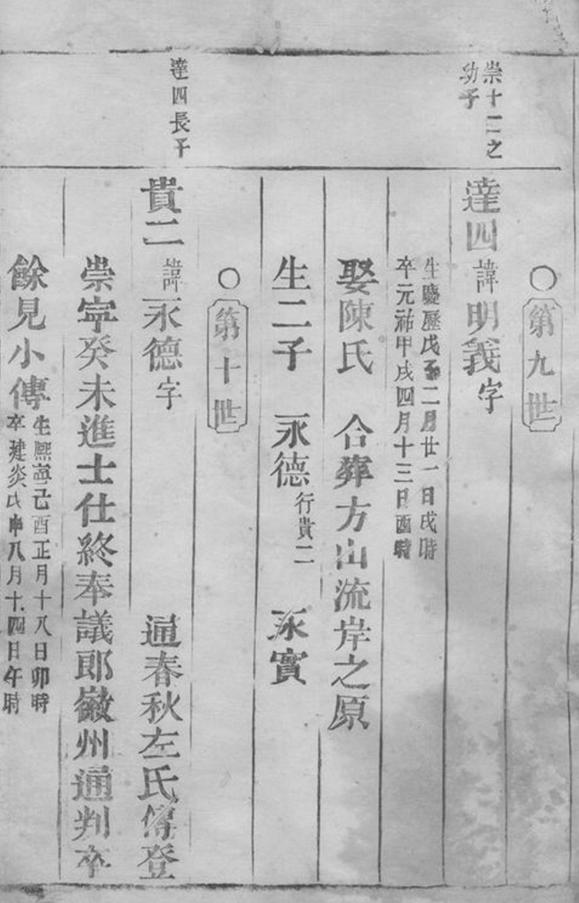 ○第九世
崇十二之
幼子
達四諱明義字
生慶歷戊子二月廿一日戌時
卒元祐甲戌四月十三日酉時
娶陳氏 合葬方山流岸之原
生二子 永德行貴二 永實
○第十世
達四長子
貴二諱永德字 通春秋左氏傳登
崇寧癸未進士仕終奉議郎徽州通判卒
餘見小傳
生熙寧己酉正月十八日卯時
卒建炎戊申八月十四日午時